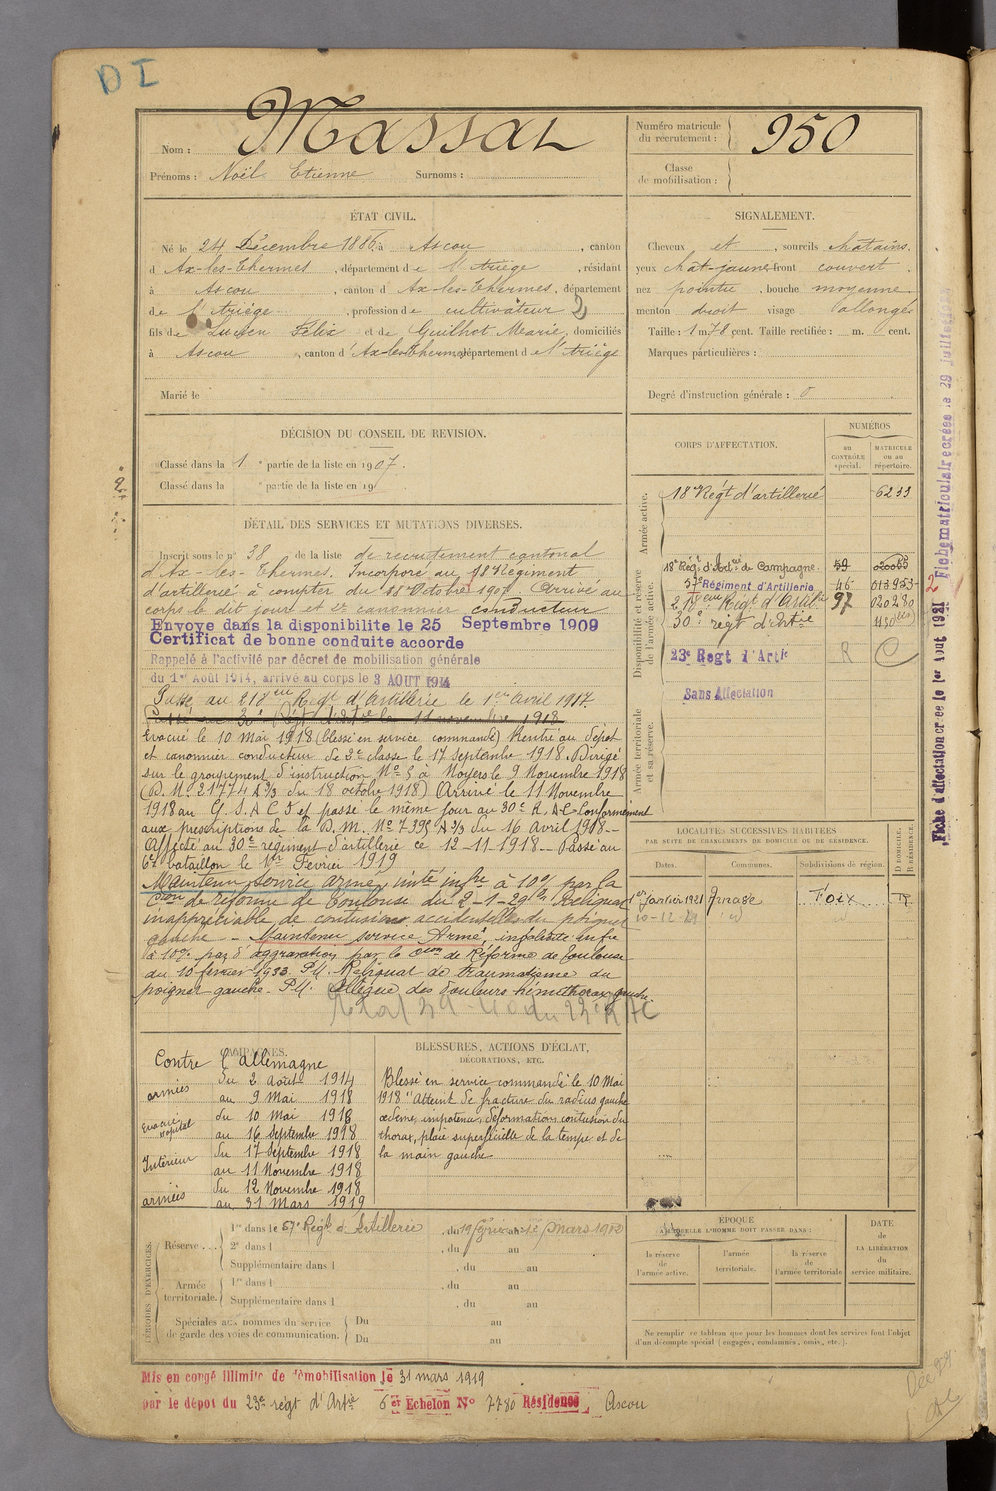 D I
Nom : Massat
Numéro matricule du recrutement : 950
Prénoms : Noël Etienne Surnoms :
Classe de mobilisation :
ÉTAT CIVIL.
Né le 24 Décembre 1886, à Ascou, canton
d'Ax-les-Thermes, département de l'Ariège, résidant
à Ascou, canton d'Ax-les-Thermes, département
de l'Ariège, profession de cultivateur
fils de Lucien Félix et de Guilhot Marie, domiciliés
à Ascou, canton d'Ax-les-Thermes, département de l'Ariège
Marié le
SIGNALEMENT.
Cheveux et, sourcils chatains.
yeux chat-jaune front couvert
nez pointu, bouche moyenne.
menton droit visage allongé
Taille : 1 m. 78 cent. Taille rectifiée : m. cent.
Marques particulières :
Degré d'instruction générale : 0
DÉCISION DU CONSEIL DE REVISION.
Classé dans la 1e partie de la liste en 1907.
Classé dans la e partie de la liste en 19
DÉTAIL DES SERVICES ET MUTATIONS DIVERSES.
Inscrit sous le n° 38 de la liste de recrutement cantonal
d'Ax-les-Thermes. Incorporé au 18e Régiment
d'artillerie à compter du Octobre 1907. Arrivé au
corps le dit jour et 2e canonnier conducteur
Envoye dans la disponibilite le 25 Septembre 1909
Certificat de bonne conduite accorde
Rappelé à l'activité par décret de mobilisation générale
du 1er Août 1914, arrivé au corps le 3 AOUT 1914
Passé au 218eme Régt d'Artillerie le 1er avril 1917.
Passé au 30e Régt d'artie le 11 novembre 1918
Evacué le 10 Mai 1918 (blessé en service commandé) Rentré au dépôt
et canonnier conducteur de 2e classe le 17 Septembre 1918. Dirigé
sur le groupement d'instruction No 5 à Noyers le 9 Novembre 1918
(D.M. 21774 A 3/3 du 18 octobre 1918) Arrivé le 11 Novembre
1918 au G.I.A.C.5 et passé le même jour au 30e R.A.C. Conformément
aux prescriptions de la D.M. No 7395 A 3/3 du 16 avril 1918.--
Affecté au 30e régiment d'artillerie ce 12-11-1918.-- Passé au
6e bataillon le 1er Février 1919
Maintenu service armé, invté infre à 10% par la
Con de réforme de Toulouse du 2-1-29 Reliquat
inappréciable de contusions accidentelles du poignet
gauche - Maintenu service Armé, invalidité infre
à 10% pas d'aggravation par la Con de Réforme de Toulouse
du 10 février 1933 P.M. Reliquat de traumatisme du
poignet gauche. P.M. Allègue des douleurs hémithorax gauche.
CORPS D'AFFECTATION.
NUMÉROS
au CONTRÔLE spécial.
MATRICULE ou au répertoire.
Armée active.
18e Régt d'artillerie 6233
Disponibilité et réserve de l'armée active.
18e Régt d'Artie de Campagne 59
57e Régiment d'Artillerie 46
218eme Régt d'Artilie 97 020280
30e régt d'artie
23e Regt d'Artie R C
Sans Affectation
Armée territoriale et sa réserve.
Fiche d'affectation créée le 1er Aout 1921
Fiche matriculaire créée le 29 juillet
LOCALITÉS SUCCESSIVES HABITÉES
PAR SUITE DE CHANGEMENTS DE DOMICILE OU DE RÉSIDENCE.
Dates. Communes. Subdivisions de région. D. DOMICILE. R. RÉSIDENCE.
1er Janvier 1921 Foix
CAMPAGNES.
Contre l'Allemagne
armées du 2 Août 1914
au 9 Mai 1918
Evacué hôpital du 10 Mai 1918
au 16 Septembre 1918
Intérieur du 17 Septembre 1918
au 11 Novembre 1918
armées du 12 Novembre 1918
au 31 Mars 1919
BLESSURES, ACTIONS D'ÉCLAT, DÉCORATIONS, ETC.
Blessé en service commandé le 10 Mai
1918 "Atteint de fracture du radius gauche
œdème, impotence, déformation, contusion du
thorax, plaie superficielle de la tempe et de
la main gauche
PÉRIODES D'EXERCICES.
Réserve...
1re dans le 57e Régt d'Artillerie, du 19 février au mars 19
2e dans l , du au
Supplémentaire dans l , du au
Armée territoriale.
1re dans l , du au
Supplémentaire dans l , du au
Spéciales aux hommes du service de garde des voies de communication.
Du au
Du au
EPOQUE
À LAQUELLE L'HOMME DOIT PASSER DANS :
la réserve de l'armée active.
l'armée territoriale.
la réserve de l'armée territoriale
DATE DE LA LIBÉRATION du service militaire.
Ne remplir ce tableau que pour les hommes dont les services font l'objet
d'un décompte spécial (engagés, condamnés, omis, etc.).
Mis en congé illimité de démobilisation le 31 mars 1919
par le dépôt du 23e régt d'Artie 6e Echelon No 7780 Résidence Ascou